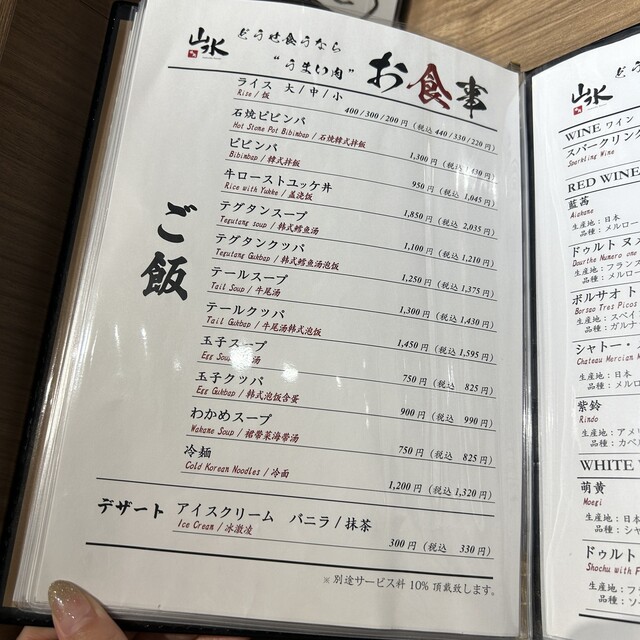 山水
どうせ食うなら
“うまい肉”
お食事
ご飯
ライス 大/中/小
Rice / 飯
400/300/200円 (税込 440/330/220円)
石焼ビビンバ
Hot Stone Pot Bibimbap / 石焼韓式拌飯
1,300円 (税込 1,430円)
ビビンバ
Bibimbap / 韓式拌飯
950円 (税込 1,045円)
牛ローストユッケ丼
Rice with Yukke / 盖浇饭
1,850円 (税込 2,035円)
テグタンスープ
Tegutang soup / 韩式鳕鱼汤
1,100円 (税込 1,210円)
テグタンクッパ
Tegutang Gukbap / 韩式鳕鱼汤泡饭
1,250円 (税込 1,375円)
テールスープ
Tail Soup / 牛尾汤
1,300円 (税込 1,430円)
テールクッパ
Tail Gukbap / 牛尾汤韩式泡饭
1,450円 (税込 1,595円)
玉子スープ
Egg Soup
汤
750円 (税込 825円)
玉子クッパ
Egg Gukbap / 韩式泡饭含蛋
900円 (税込 990円)
わかめスープ
Wakame Soup / 裙带菜海带汤
750円 (税込 825円)
冷麺
Cold Korean Noodles / 冷面
1,200円 (税込 1,320円)
デザート
アイスクリーム バニラ/抹茶
Ice Cream / 冰激凌
300円 (税込 330円)
※ 別途サービス料 10% 頂戴致します。
山水
ど
WINE ワイン
スパークリン
Sparkling Wine
RED WINE
藍茜
Aiakane
生産地：日本
品種：メルロー
ドゥルト ヌ
Dourthe Numero one
生産地：フランス
品種：メルロ
ボルサオ ト
Borsao Tres Picos
生産地：スペイ
品種：ガルナ
シャトー・
Chateau Mercian
生産地：日本
品種：メルロ
紫鈴
Rindo
生産地：アメリ
品種：カベル
WHITE
萌黄
Moegi
生産地：日本
品種：シャ
ドゥルト
Shochu with F
生産地：フラ
品種：ソー